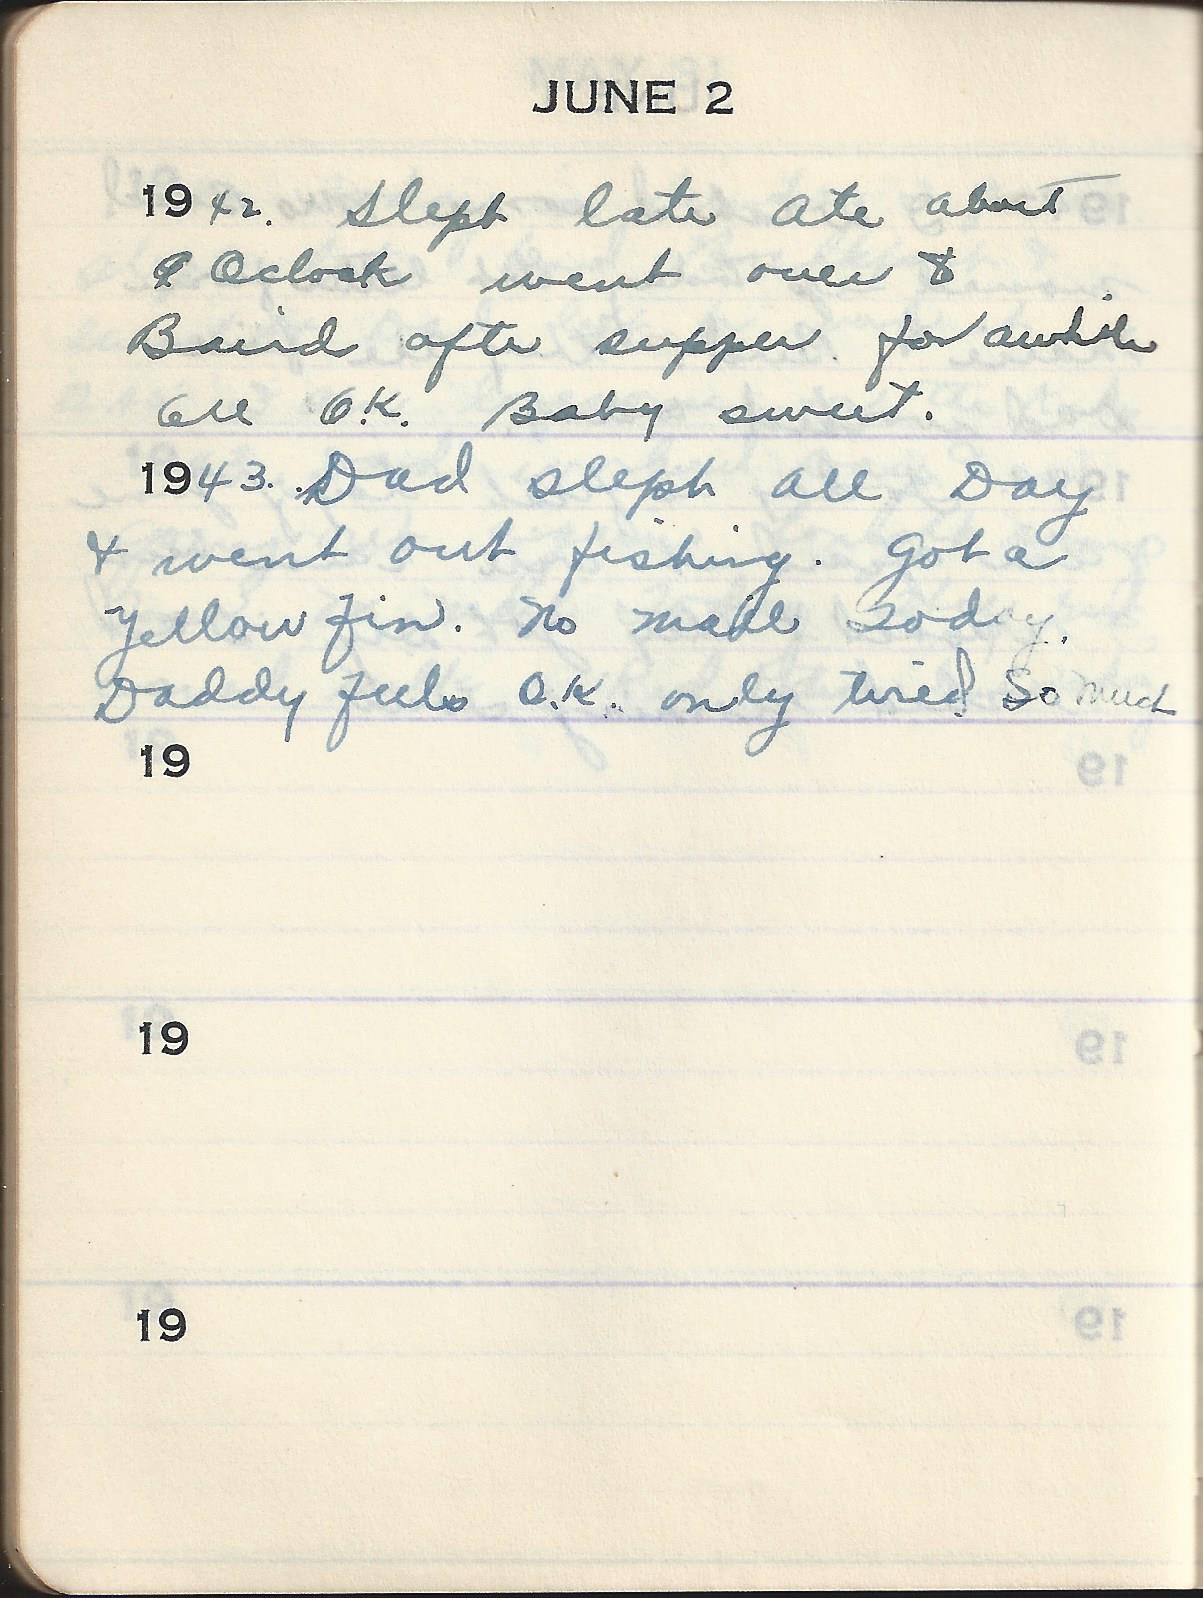 JUNE 2
1942. Slept late ate about
9 Oclock went over &
Baird after supper for awhile
all O.K. Baby sweet.
1943. Dad slept all Day
& went out fishing. Got a
Yellow fin. No mail Today.
Daddy feels O.K. only tired So much
19
19
19